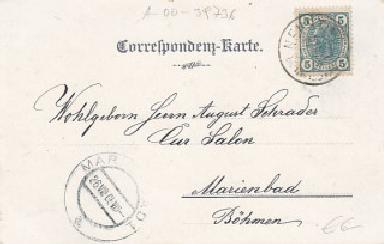 A 00-39736
Correspondenz-Karte.
5 5
5 5
Wohlgeborn Herrn August Schrader
Cur Salon
MAR
Marienbad
Böhmen